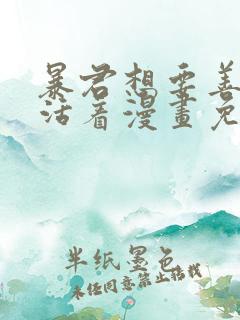 暴君想要善
活着漫畫免
半纸墨色
未经同意禁止转载